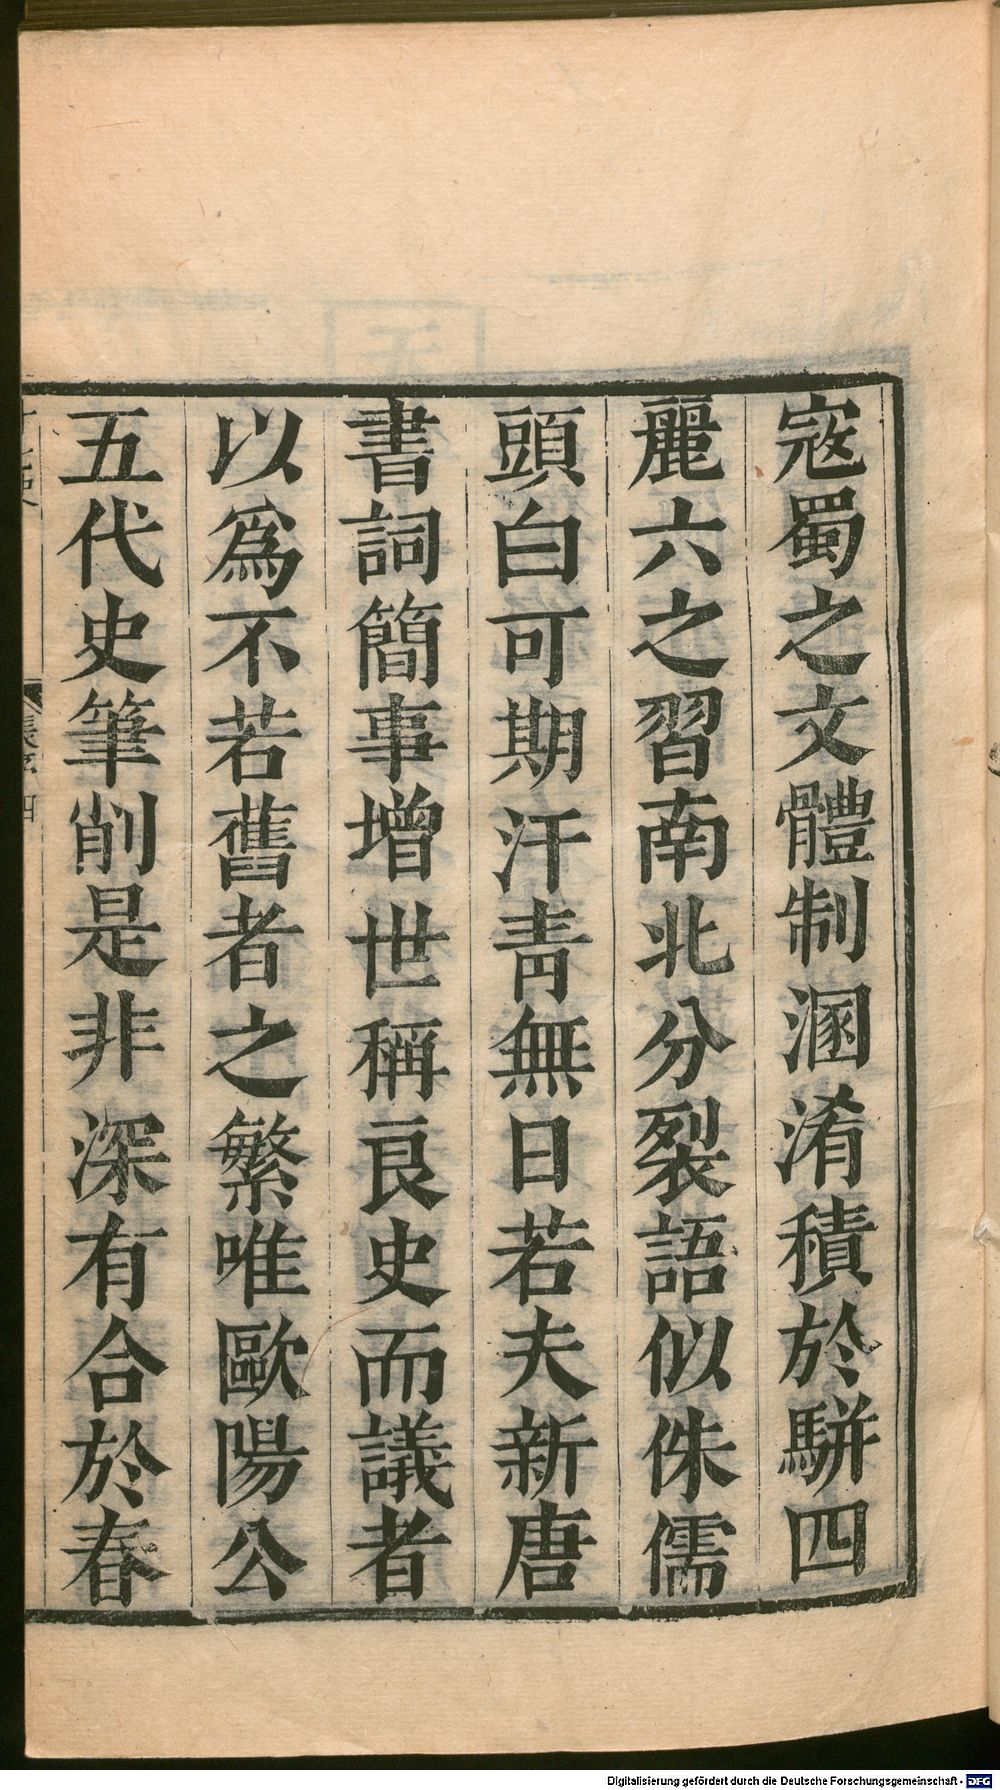 寇蜀之文體制溷淆積於駢四
麗六之習南北分裂語似侏儒
頭白可期汗青無日若夫新唐
書詞簡事增世稱良史而議者
以為不若舊者之繁唯歐陽公
五代史筆削是非深有合於春
張序 四
Digitalisierung gefördert durch die Deutsche Forschungsgemeinschaft - DFG